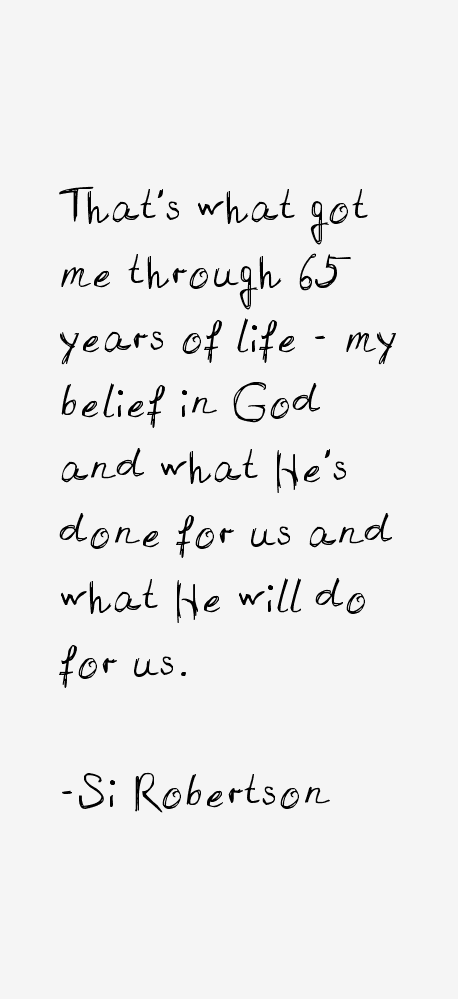 That's what got
me through 65
years of life - my
belief in God
and what He's
done for us and
what He will do
for us.
-Si Robertson